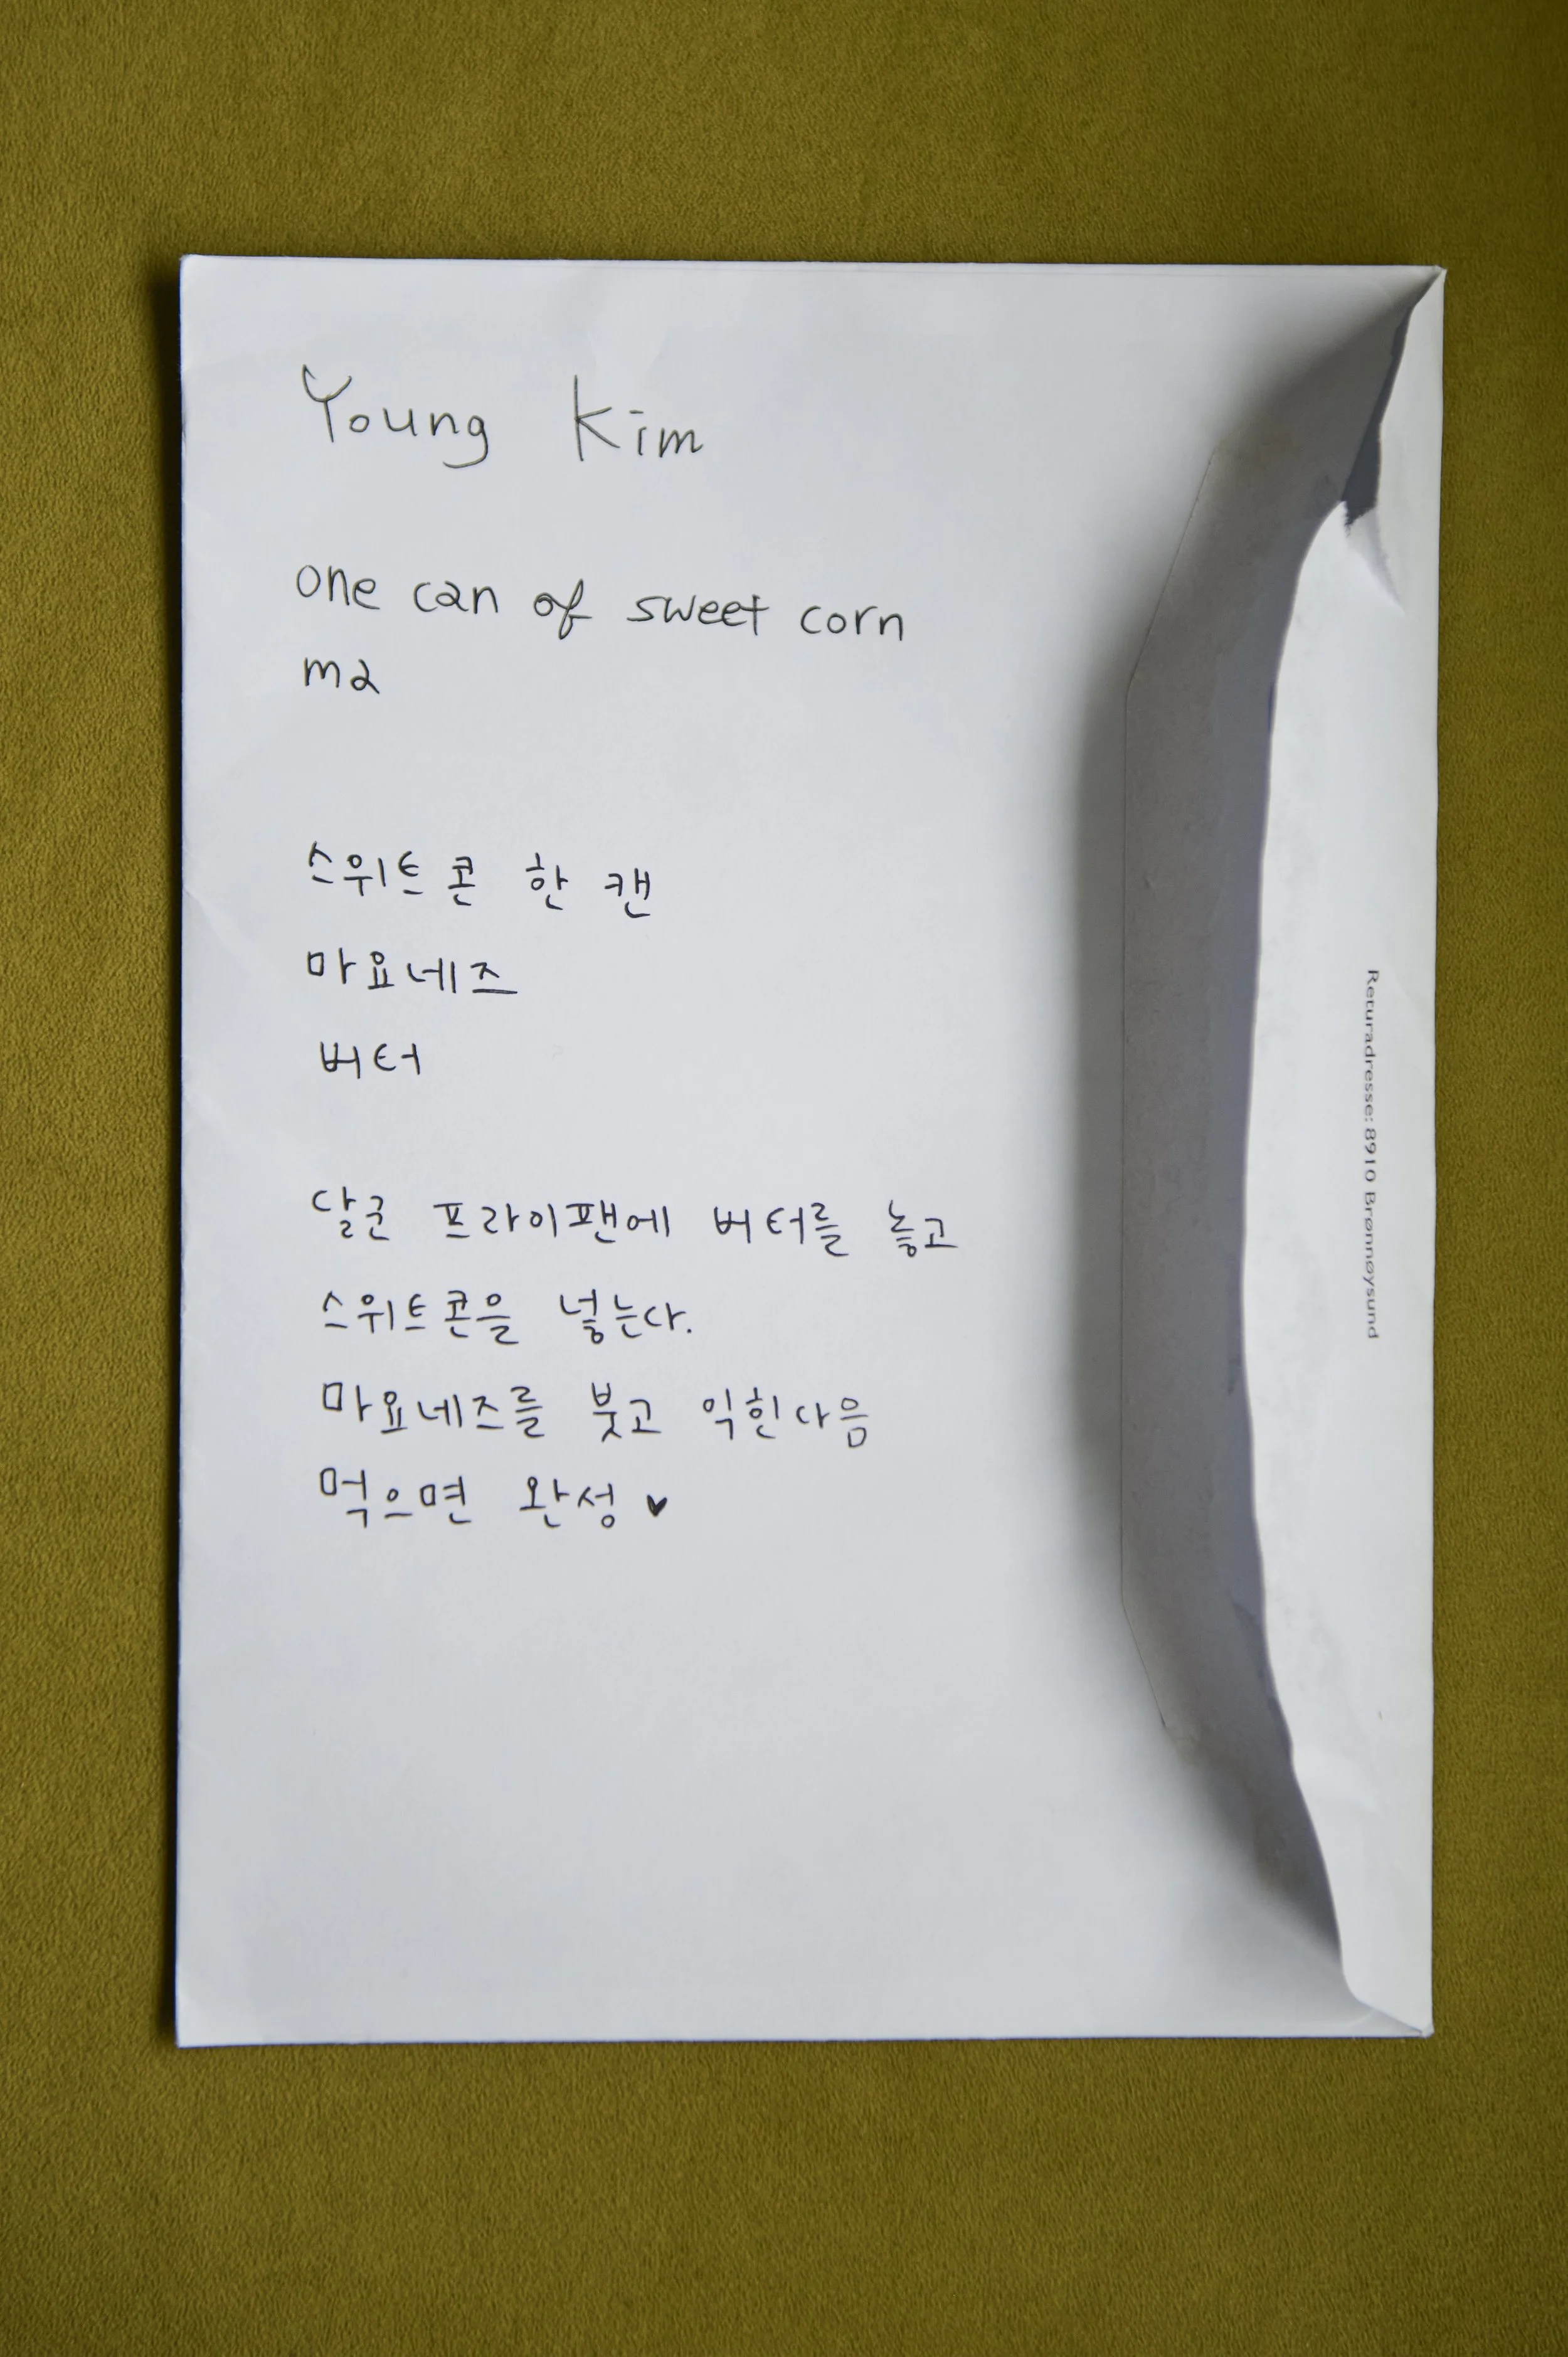 Young Kim
one can of sweet corn
ma
스위트콘 한 캔
마요네즈
버터
달군 프라이팬에 버터를 놓고
스위트콘을 넣는다.
마요네즈를 붓고 익힌다음
먹으면 완성 ♥
Returadresse: 8910 Brønnøysund